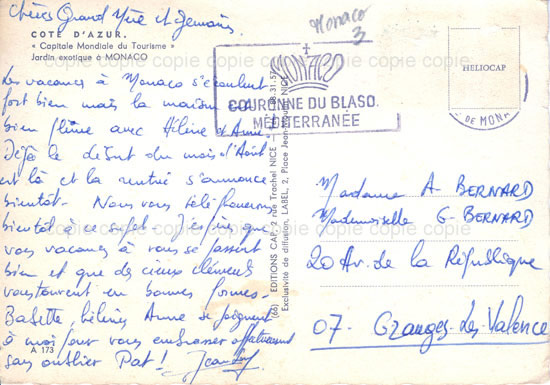 Chères Grand Mère et Germaine
COTE D'AZUR.
« Capitale Mondiale du Tourisme »
Jardin exotique à MONACO
Les vacances à Monaco s'écoulent
fort bien mais la maison est
bien pleine avec Hélène et Anne.
Déjà le début du mois d'Août
est là et la rentrée s'annonce
bientôt. Nous vous téléphonerons
bientôt à ce sujet. J'espère que
vos vacances à vous se passent
bien et que des cieux cléments
vous trouvent en bonnes formes.
Babette, Hélène Anne se joignent
à moi pour vous embrasser affectueusement
sans oublier Pat! Jean
A 173
(66) EDITIONS CAP, 3 rue Trachel NICE - 88.31.57
Exclusivité de diffusion, LABEL, 2, Place Jean NICE
Monaco
3
MONACO
COURONNE DU BLASO
MEDITERRANÉE
HELIOCAP
DE MON
Madame A. BERNARD
Mademoiselle G. BERNARD
20 Av. de la République
07. Granges-les-Valence
copie copie copie copie copie copie
copie copie copie copie copie copie
copie copie copie copie copie copie